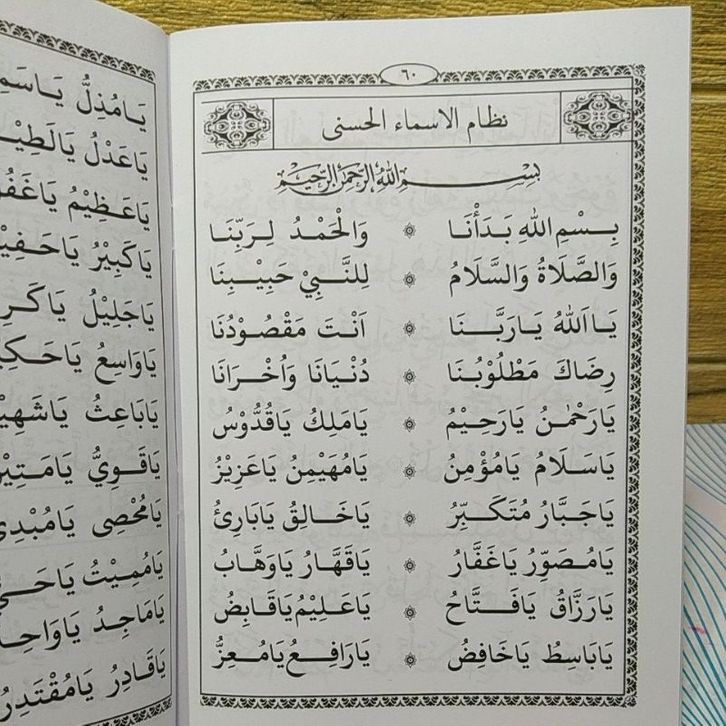 ٦٠
نظام الاسماء الحسنى
بسم الله الرحمن الرحيم
بِسْمِ اللهِ بَدَأْنَا ۞ وَالْحَمْدُ لِرَبِّنَا
وَالصَّلَاةُ وَالسَّلَامُ ۞ لِلنَّبِيْ حَبِيْبِنَا
يَا اَللهُ يَارَبَّنَا ۞ اَنْتَ مَقْصُوْدُنَا
رِضَاكَ مَطْلُوْبُنَا ۞ دُنْيَانَا وَاُخْرَانَا
يَارَحْمٰنُ يَارَحِيْمُ ۞ يَامَلِكُ يَاقُدُّوْسُ
يَاسَلَامُ يَامُؤْمِنُ ۞ يَامُهَيْمِنُ يَاعَزِيْزُ
يَاجَبَّارُ مُتَكَبِّرُ ۞ يَاخَالِقُ يَابَارِئُ
يَامُصَوِّرُ يَاغَفَّارُ ۞ يَاقَهَّارُ يَاوَهَّابُ
يَارَزَّاقُ يَافَتَّاحُ ۞ يَاعَلِيْمُ يَاقَابِضُ
يَابَاسِطُ يَاخَافِضُ ۞ يَارَافِعُ يَامُعِزُّ
يَامُذِلُّ
يَاعَدْلُ
يَاعَظِيْمُ
يَاكَبِيْرُ
يَاجَلِيْلُ
يَاوَاسِعُ
يَابَاعِثُ
يَاقَوِيُّ
يَامُحْصِى
يَامُمِيْتُ
يَامَاجِدُ
يَاقَادِرُ